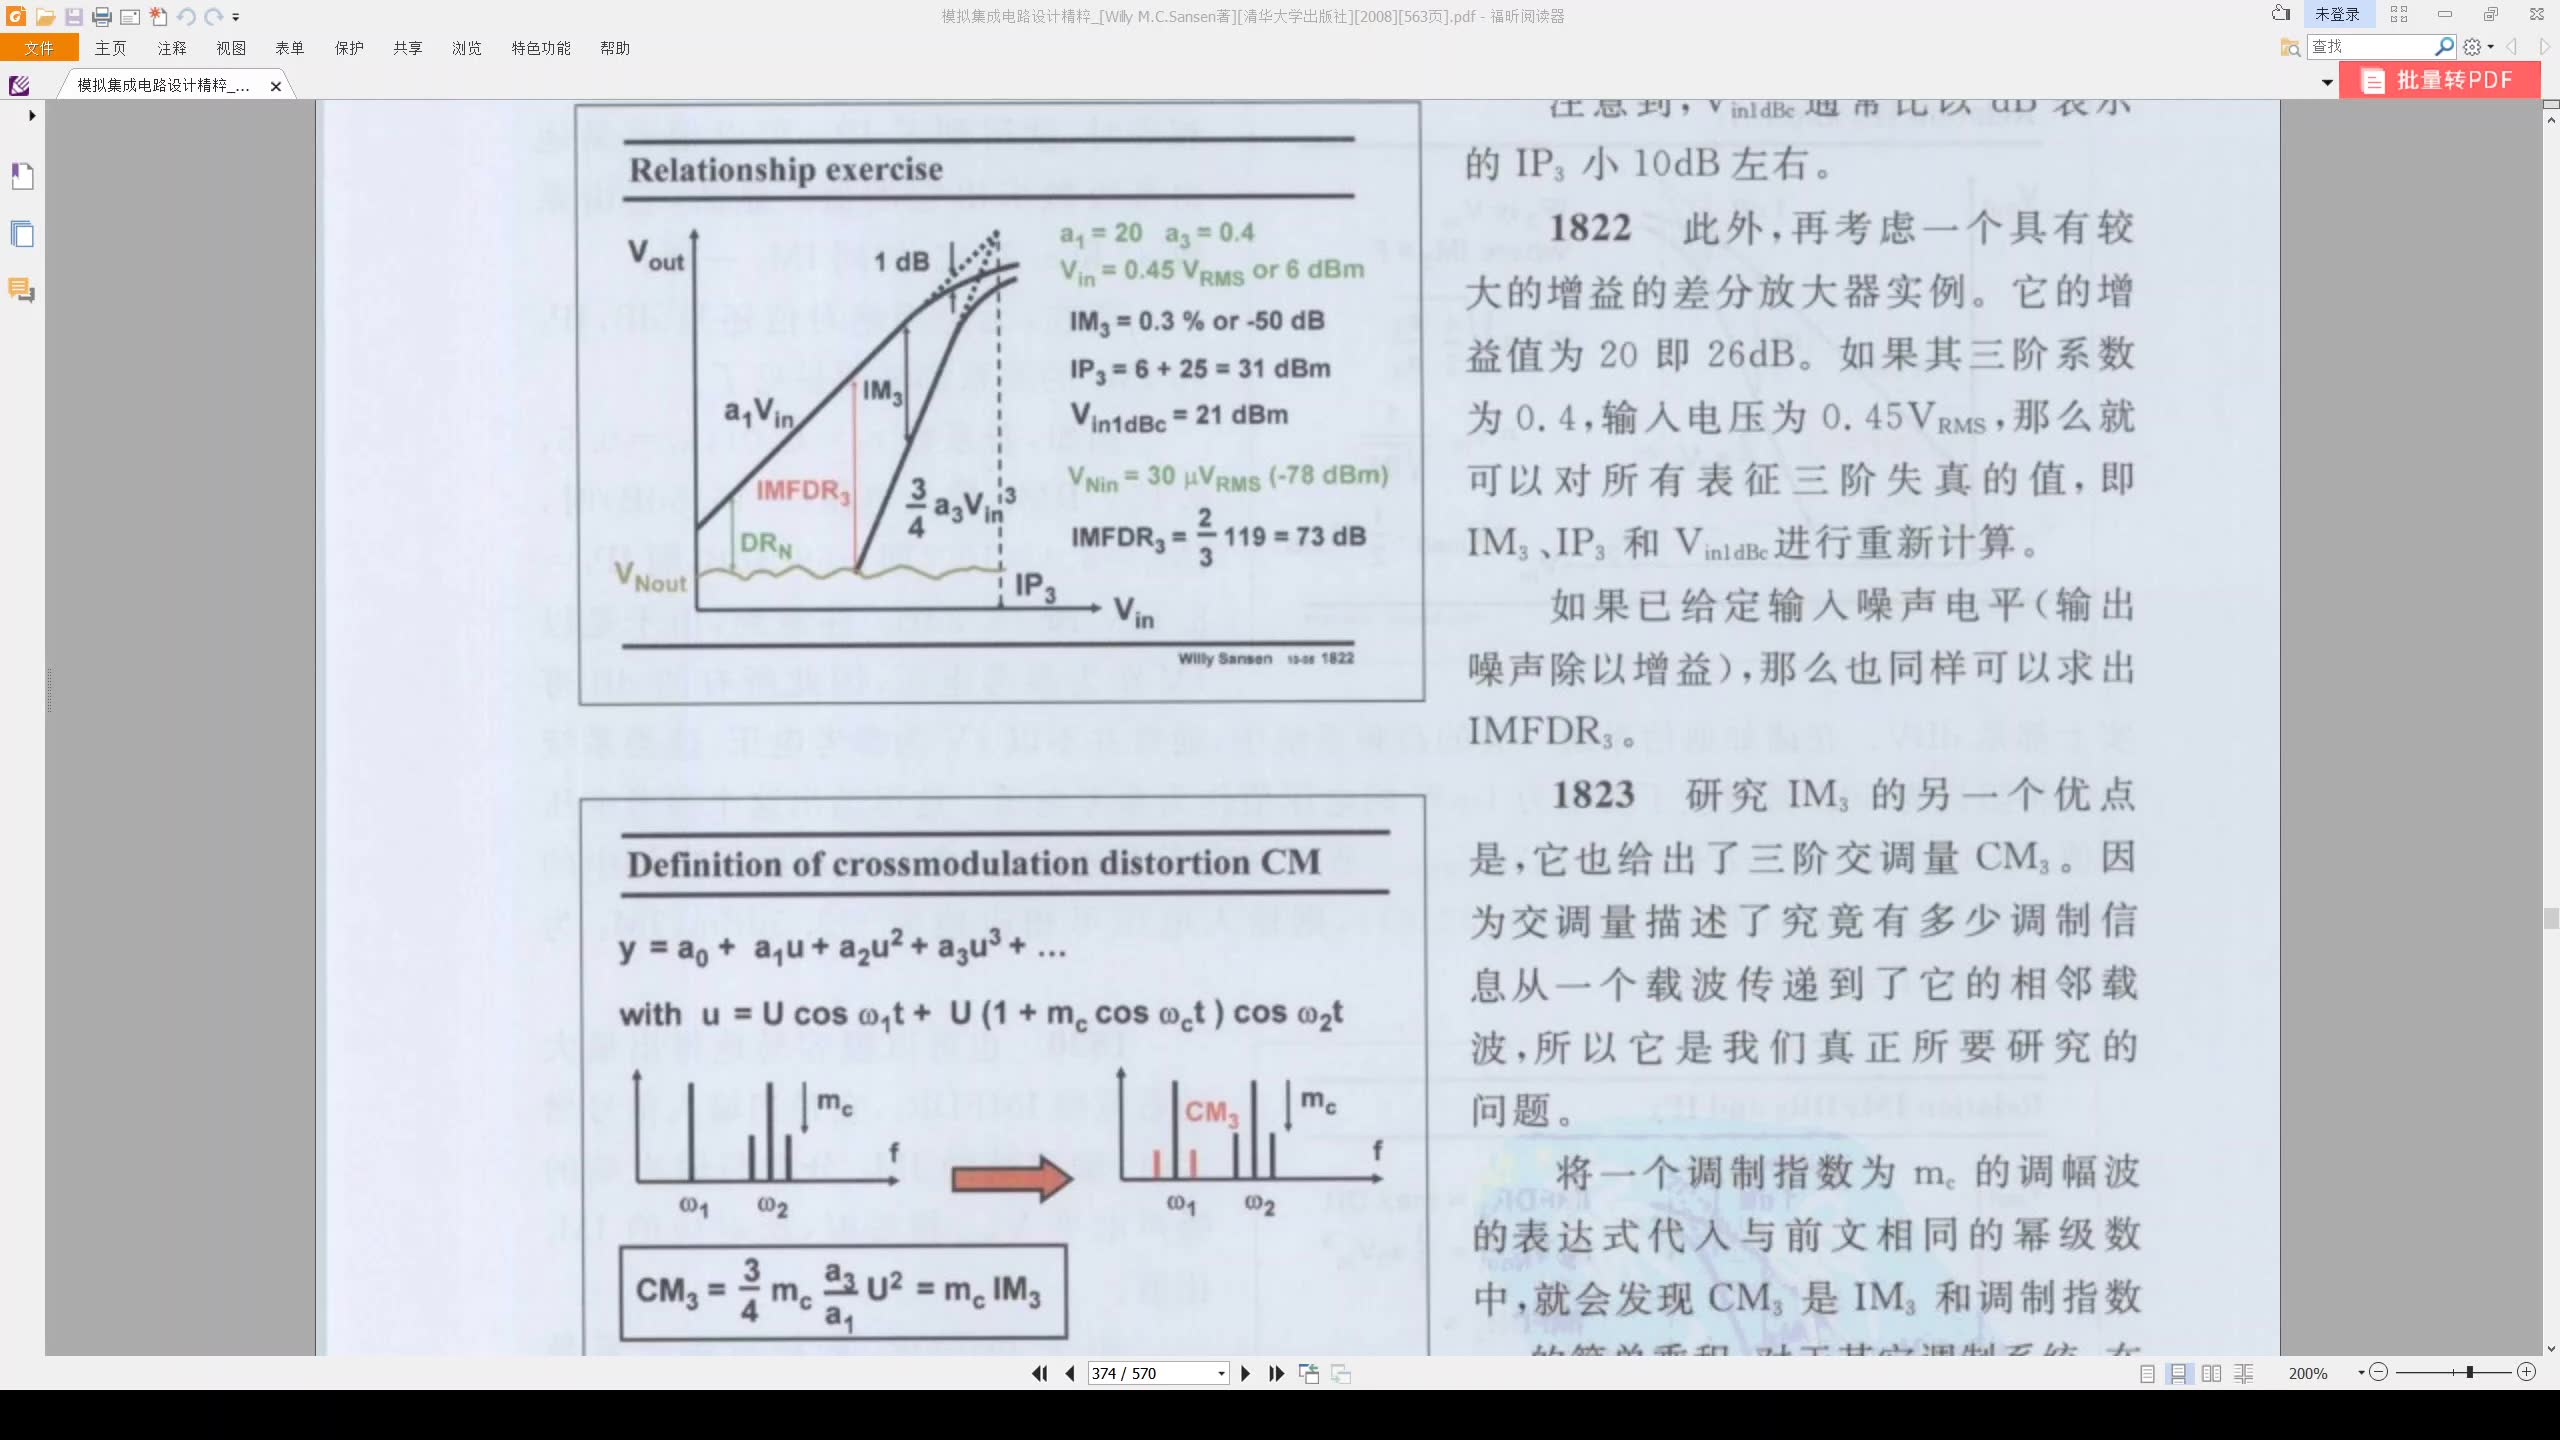 模拟集成电路设计精粹_[Willy M.C.Sansen著][清华大学出版社][2008][563页].pdf - 福昕阅读器
未登录
文件 主页 注释 视图 表单 保护 共享 浏览 特色功能 帮助
查找
模拟集成电路设计精粹_...
批量转PDF
Relationship exercise
Vout
1 dB
a1Vin
IM3
IMFDR3
DRN
VNout
3/4 a3Vin^3
IP3
Vin
a1 = 20 a3 = 0.4
Vin = 0.45 VRMS or 6 dBm
IM3 = 0.3 % or -50 dB
IP3 = 6 + 25 = 31 dBm
Vin1dBc = 21 dBm
VNin = 30 µVRMS (-78 dBm)
IMFDR3 = 2/3 119 = 73 dB
Willy Sansen 10-05 1822
注意到,Vin1dBc通常比以 dB 表示
的 IP3 小 10dB 左右。
1822 此外,再考虑一个具有较
大的增益的差分放大器实例。它的增
益值为 20 即 26dB。如果其三阶系数
为 0.4,输入电压为 0.45VRMS,那么就
可以对所有表征三阶失真的值,即
IM3、IP3 和 Vin1dBc进行重新计算。
如果已给定输入噪声电平(输出
噪声除以增益),那么也同样可以求出
IMFDR3。
Definition of crossmodulation distortion CM
y = a0 + a1u + a2u² + a3u³ + ...
with u = U cos ω1t + U (1 + mc cos ωct ) cos ω2t
mc
f
ω1 ω2
CM3
mc
f
ω1 ω2
CM3 = 3/4 mc a3/a1 U² = mc IM3
1823 研究 IM3 的另一个优点
是,它也给出了三阶交调量 CM3。因
为交调量描述了究竟有多少调制信
息从一个载波传递到了它的相邻载
波,所以它是我们真正所要研究的
问题。
将一个调制指数为 mc 的调幅波
的表达式代入与前文相同的幂级数
中,就会发现 CM3 是 IM3 和调制指数
374 / 570
200%